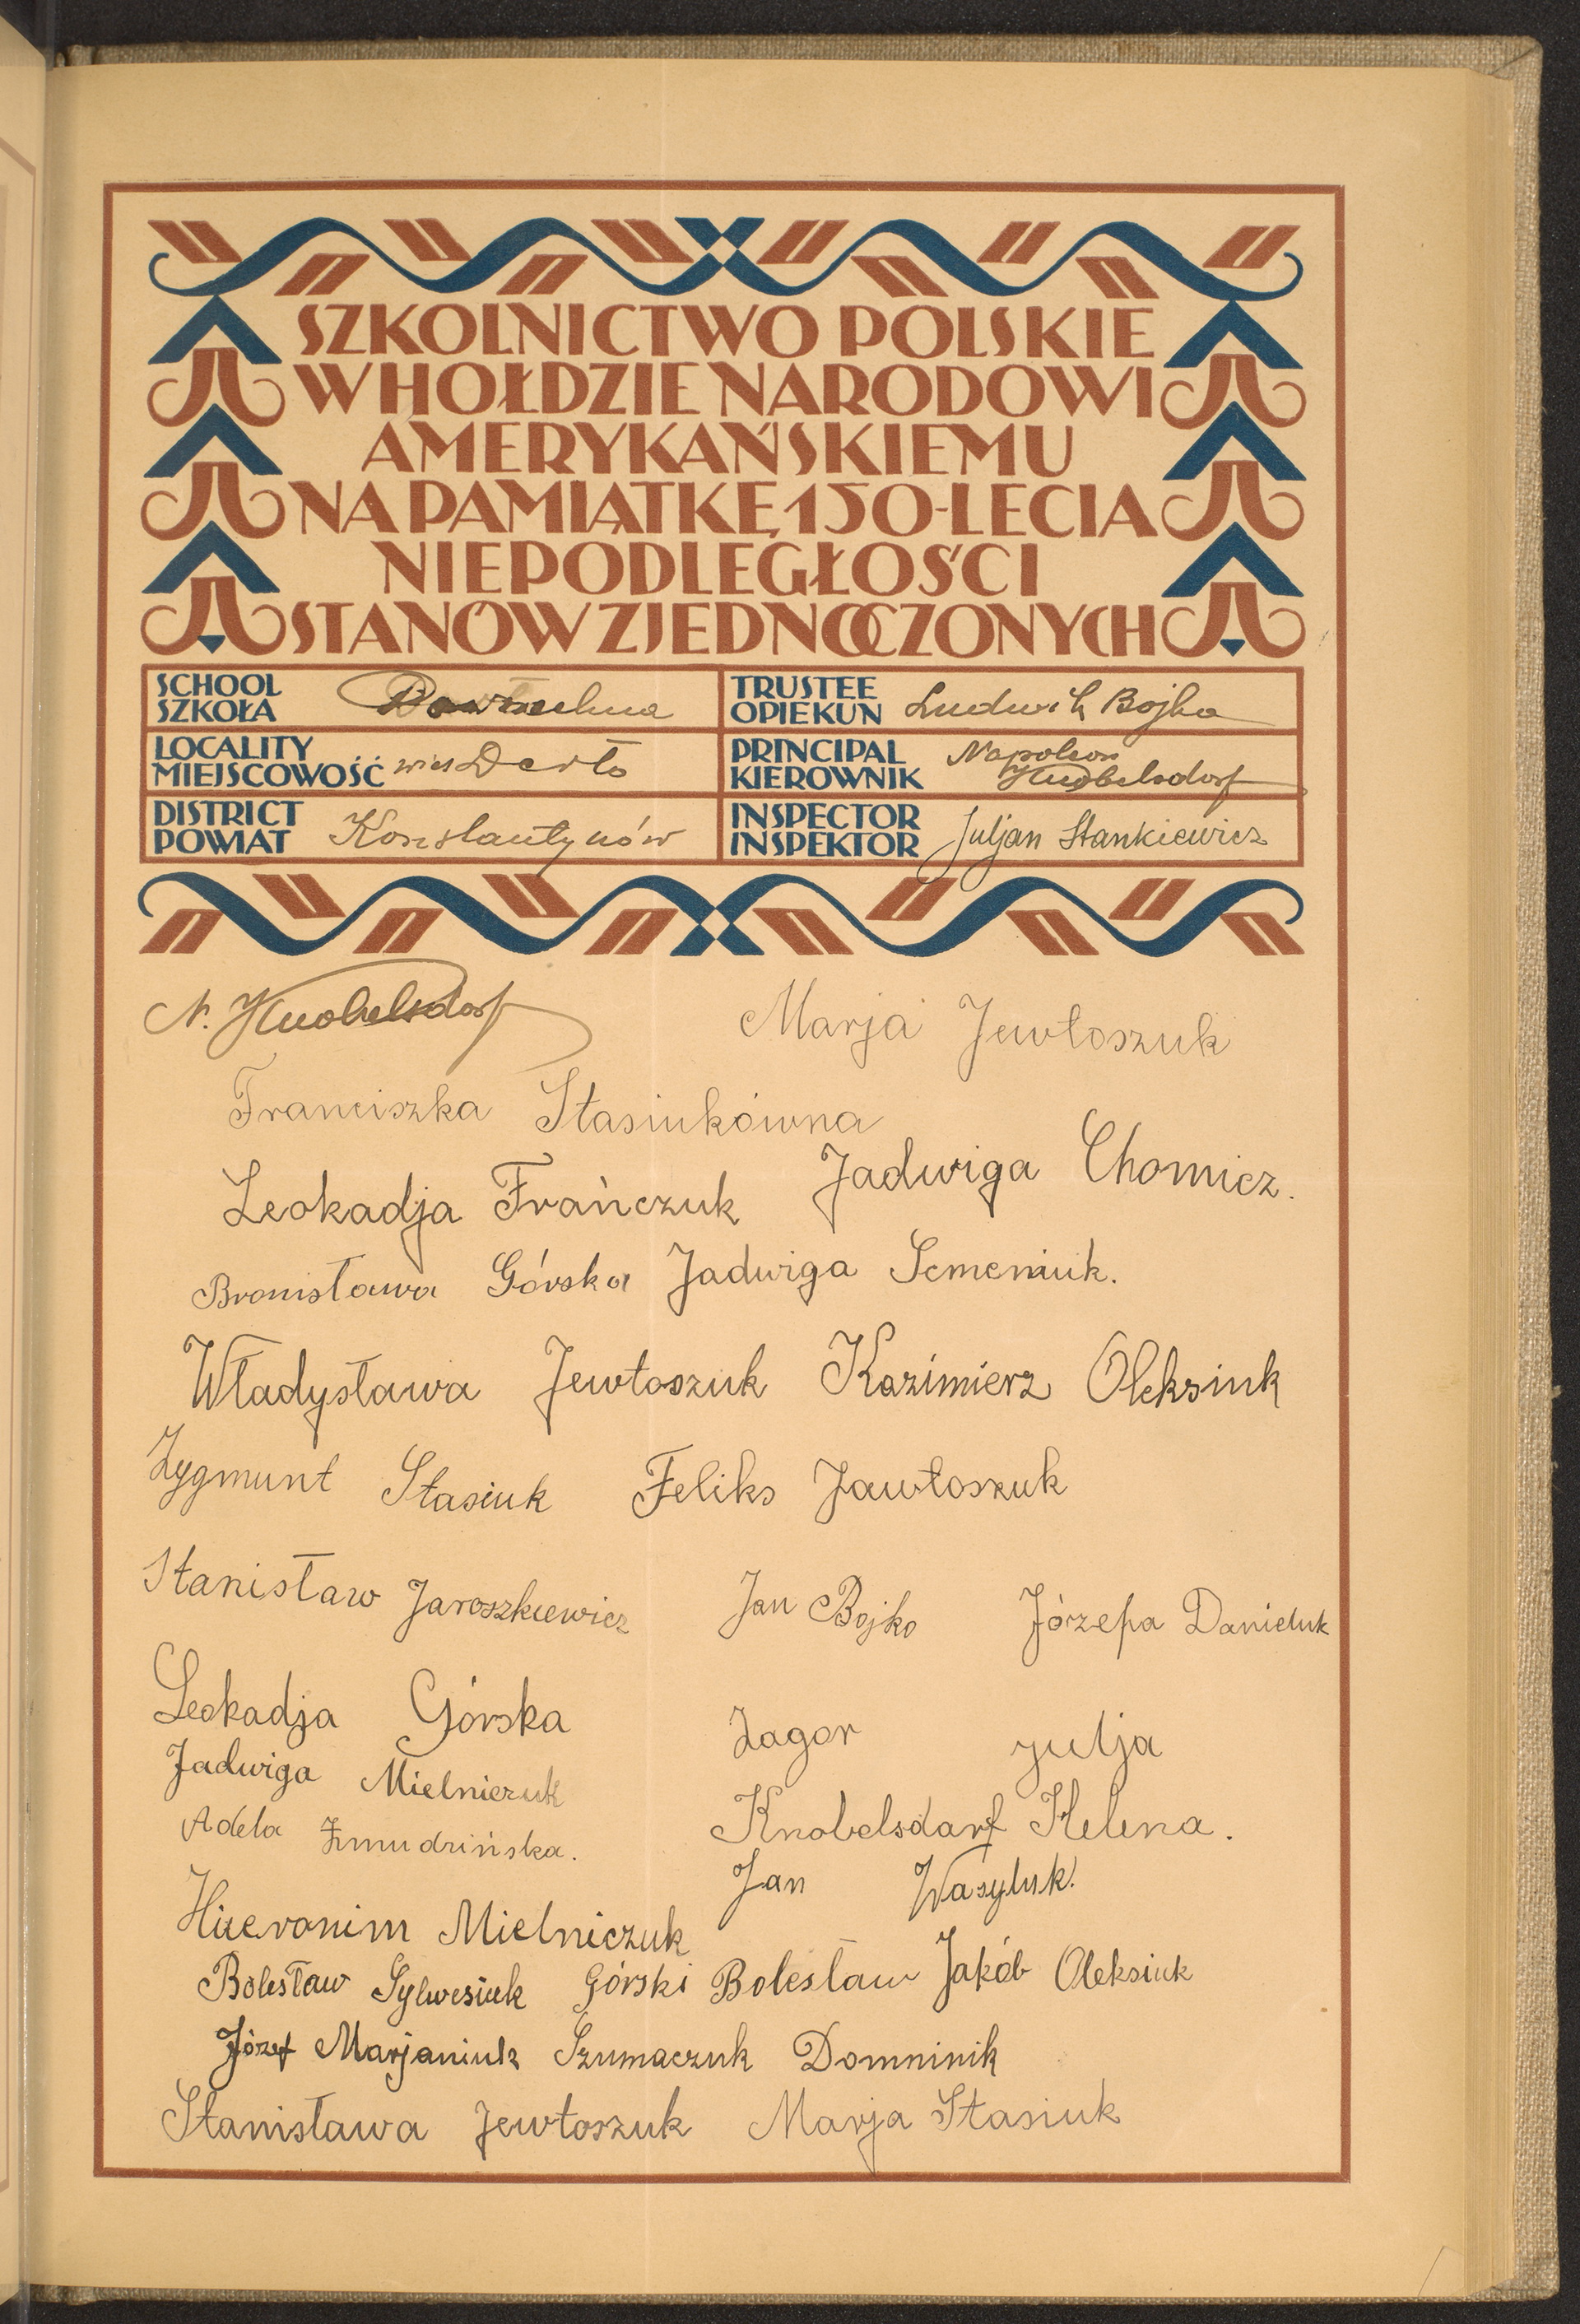 SZKOLNICTWO POLSKIE
W HOŁDZIE NARODOWI
AMERYKAŃSKIEMU
NA PAMIĄTKĘ 150-LECIA
NIEPODLEGŁOŚCI
STANÓW ZJEDNOCZONYCH
SCHOOL
SZKOŁA Powszechna
TRUSTEE
OPIEKUN Ludwik Bojko
LOCALITY
MIEJSCOWOŚĆ wieś Derło
PRINCIPAL
KIEROWNIK Napoleon Knobelsdorf
DISTRICT
POWIAT Konstantynów
INSPECTOR
INSPEKTOR Juljan Stankiewicz
N. Knobelsdorf Marja Jewłoszuk
Franciszka Stasiukówna
Leokadja Frańczuk Jadwiga Chomicz.
Bronisława Górska Jadwiga Semeniuk.
Władysława Jewtoszuk Kazimierz Oleksiuk
Zygmunt Stasiuk Feliks Jawłoszuk
Stanisław Jaroszkiewicz Jan Bojko Józefa Danieluk
Leokadja Górska Zagor Julja
Jadwiga Mielniczuk Knobelsdorf Helena.
Adela Żmudzińska. Jan Wasyluk.
Hieronim Mielniczuk
Bolesław Sylwesiuk Górski Bolesław Jakób Oleksiuk
Józef Marjaniuk Szumaczuk Domninik
Stanisława Jewtoszuk Marja Stasiuk